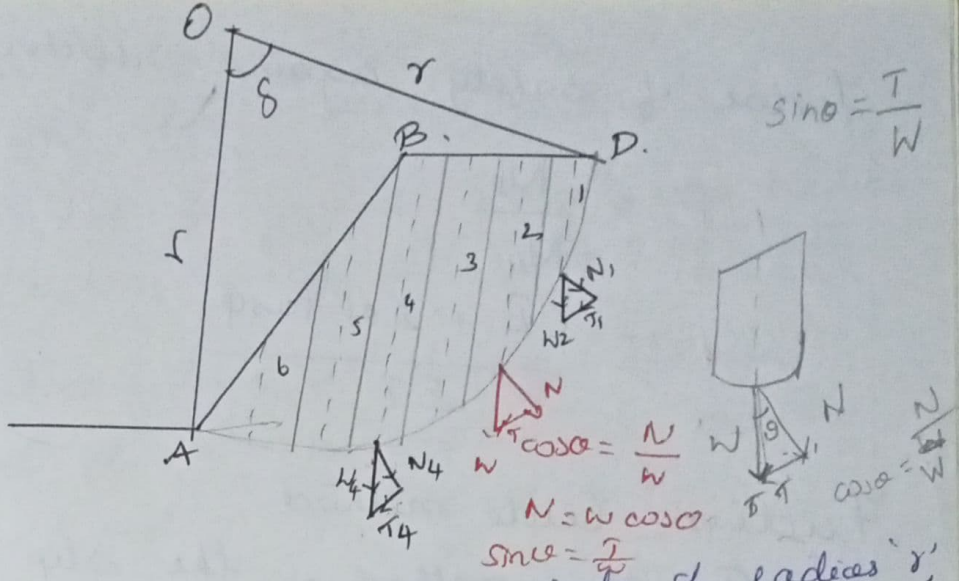 O
r
δ
sinθ = T/W
B.
D.
r
1
2
3
4
5
6
N1
T1
W2
A
W4
N4
T4
N
T
W
cosθ = N/W
N = W cosθ
sinθ = T/
W
θ
N
T
cosθ = N/W
radices 'r,